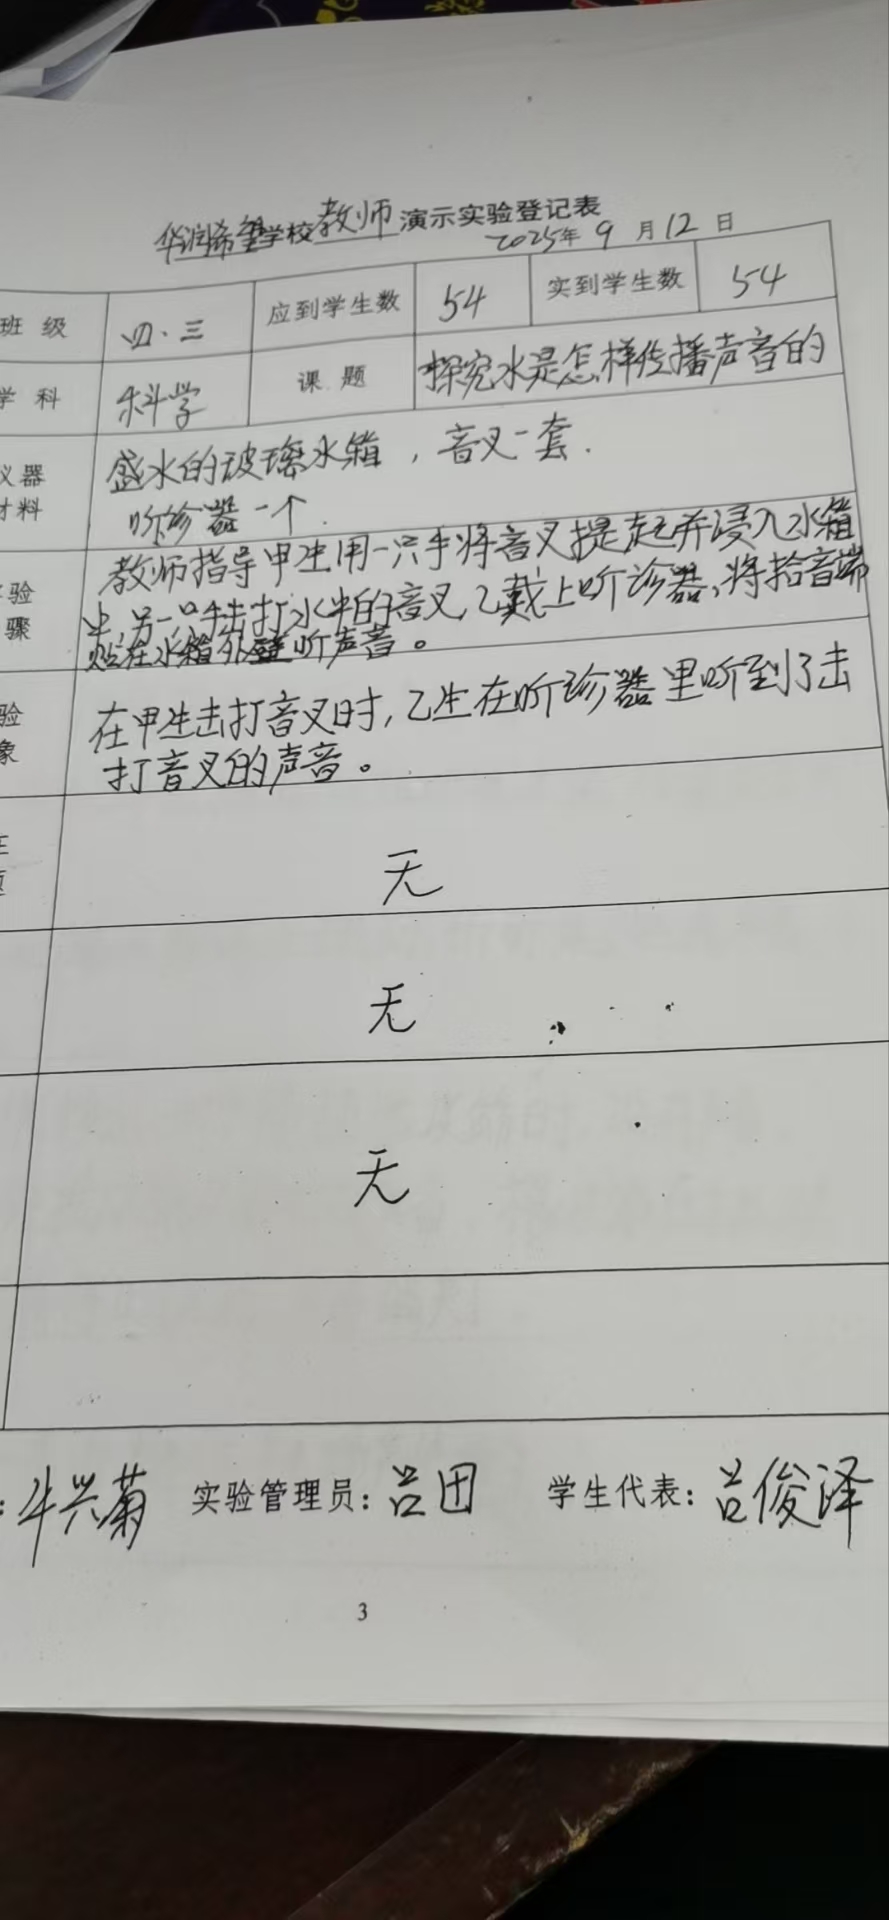 华润希望学校教师演示实验登记表
2025年9月12日
班 级 四·三 应到学生数 54 实到学生数 54
学 科 科学 课 题 探究水是怎样传播声音的
仪器
材料
盛水的玻璃水箱，音叉一套.
听诊器一个.
验
骤
教师指导甲生用一只手将音叉提起并浸入水箱
中,另一只手击打水中的音叉,乙戴上听诊器,将拾音端
贴在水箱外壁听声音。
验
象
在甲生击打音叉时,乙生在听诊器里听到了击
打音叉的声音。
无
无
无
: 牛兴菊 实验管理员: 吕团 学生代表: 吕俊泽
3